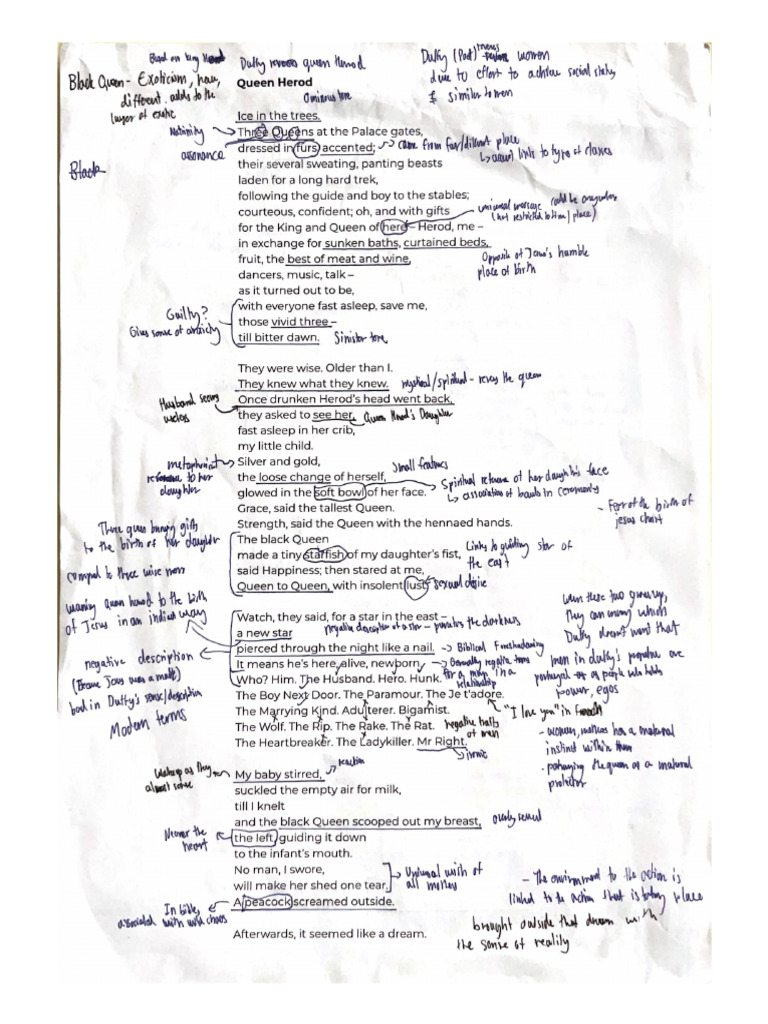 Based on king Herod
Duffy reverses queen Herod
Duffy (Poet) means women
due to effort to achieve social status
& similar to men
Black Queen - Exoticism, hair,
different. adds to the
layer of exotic
Queen Herod
Ominous tone
Ice in the trees.
Nativity
Three Queens at the Palace gates,
assonance
dressed in furs accented;
came from far/different place
accent links to type of classes
Black
their several sweating, panting beasts
laden for a long hard trek,
following the guide and boy to the stables;
courteous, confident; oh, and with gifts
universal message could be anywhere
(not restricted to time/place)
for the King and Queen of here – Herod, me –
in exchange for sunken baths, curtained beds,
fruit, the best of meat and wine,
Opposite of Jesus's humble
place of birth
dancers, music, talk –
as it turned out to be,
Guilty?
Gives sense of anxiety
with everyone fast asleep, save me,
those vivid three –
till bitter dawn.
Sinister tone
They were wise. Older than I.
They knew what they knew.
mystical/spiritual -
the queen
Husband seems
useless
Once drunken Herod's head went back,
they asked to see her,
Queen Herod's Daughter
fast asleep in her crib,
my little child.
metaphorical
reference to her
daughter
Silver and gold,
Small features
the loose change of herself,
glowed in the soft bowl of her face.
Spiritual reference of her daughter's face
association of bowls in ceremony
Grace, said the tallest Queen.
Strength, said the Queen with the hennaed hands.
- Fear of the birth of
jesus christ
Three queens bringing gifts
to the birth of her daughter
compared to three wise men
The black Queen
made a tiny starfish of my daughter's fist,
Links to guiding star of
the east
said Happiness; then stared at me,
Queen to Queen, with insolent lust
sexual desire
warning queen herod to the birth
of Jesus in an indirect way
Watch, they said, for a star in the east –
a new star
negative description of a star - penetrates the darkness
pierced through the night like a nail.
Biblical Foreshadowing
negative description
(Because Jesus was a male)
bad in Duffy's sense/description
Modern terms
It means he's here, alive, newborn.
Generally negative terms
for a man in a
relationship
Who? Him. The Husband. Hero. Hunk.
The Boy Next Door. The Paramour. The Je t'adore.
"I love you" in French
The Marrying Kind. Adulterer. Bigamist.
The Wolf. The Rip. The Rake. The Rat.
negative traits
of men
The Heartbreaker. The Ladykiller. Mr Right.
ironic
when these two grows up,
they can marry which
Duffy doesn't want that
men in duffy's perspective are
portrayed as people who holds
power, egos
- women, mothers has a maternal
instinct within them
. portraying the queen as a maternal
protector
Wakeup as they
almost sense
My baby stirred,
reaction
suckled the empty air for milk,
till I knelt
and the black Queen scooped out my breast,
overly sexual
Nearer the
heart
the left, guiding it down
to the infant's mouth.
No man, I swore,
will make her shed one tear.
Universal wish of
all mothers
A peacock screamed outside.
In bible,
associated with
chaos
- The environment to the action is
linked to the action that is taking place
brought outside that dream with
the sense of reality
Afterwards, it seemed like a dream.